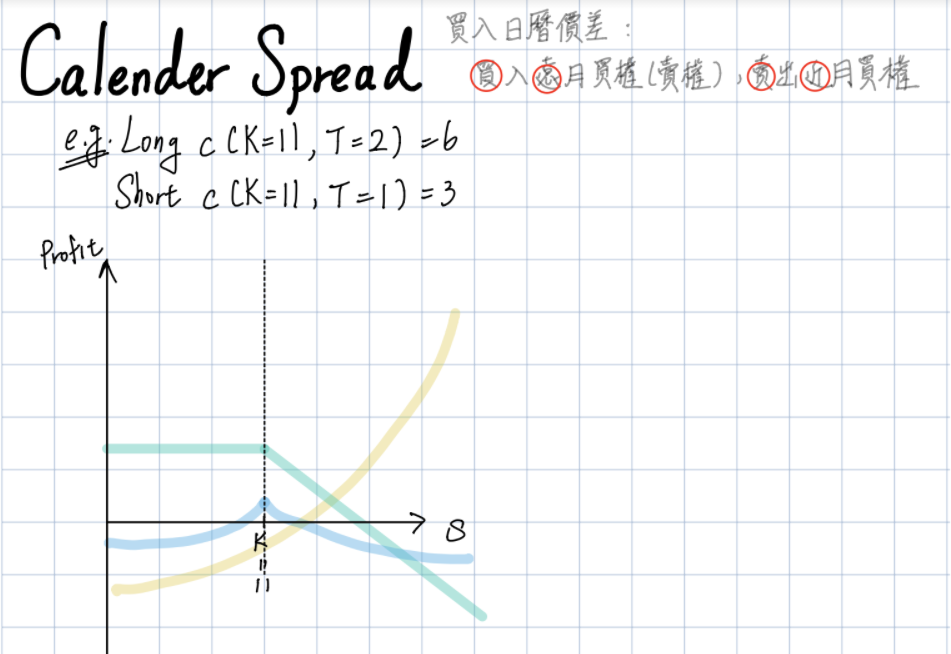 Calender Spread
買入日曆價差：
買入遠月買權(賣權),賣出近月買權
e.g. Long c (K=11, T=2) =6
Short c (K=11, T=1) =3
Profit
S
K
"
11